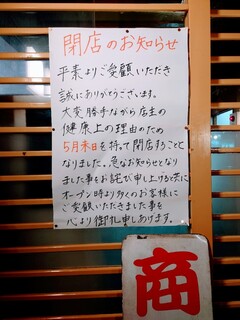 閉店のお知らせ
平素よりご愛顧いただき
誠にありがとうございます。
大変勝手ながら店主の
健康上の理由のため
5月末日を持って閉店することと
なりました。急なお知らせとなり
ました事をお詫び申し上げると共に
オープン時より多くのお客様に
ご愛顧いただきました事を
心より御礼申しあげます。
商